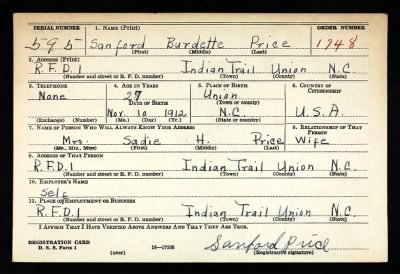 SERIAL NUMBER 1. NAME (Print) ORDER NUMBER
595 Sanford Burdette Price 1748
(First) (Middle) (Last)
2. ADDRESS (Print)
R.F.D.1 Indian Trail Union N.C.
(Number and street or R. F. D. number) (Town) (County) (State)
3. TELEPHONE 4. AGE IN YEARS 5. PLACE OF BIRTH 6. COUNTRY OF CITIZENSHIP
None 27 Union
DATE OF BIRTH (Town or county)
Nov. 10 1912 N.C. U.S.A.
(Exchange) (Number) (Mo.) (Day) (Yr.) (State or country)
7. NAME OF PERSON WHO WILL ALWAYS KNOW YOUR ADDRESS 8. RELATIONSHIP OF THAT PERSON
Mrs. Sadie H. Price Wife
(Mr., Mrs., Miss) (First) (Middle) (Last)
9. ADDRESS OF THAT PERSON
R.F.D.1 Indian Trail Union N.C.
(Number and street or R. F. D. number) (Town) (County) (State)
10. EMPLOYER'S NAME
Self
11. PLACE OF EMPLOYMENT OR BUSINESS
R.F.D.1 Indian Trail Union N.C.
(Number and street or R. F. D. number) (Town) (County) (State)
I AFFIRM THAT I HAVE VERIFIED ABOVE ANSWERS AND THAT THEY ARE TRUE.
REGISTRATION CARD
D. S. S. Form 1 (over) 16—17105 Sanford Price
(Registrant's signature)